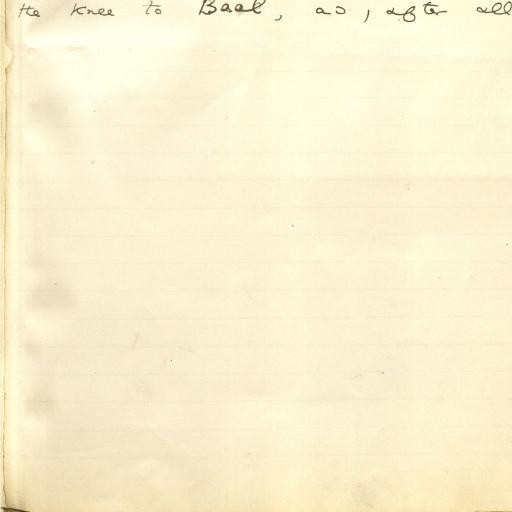 the knee to Baal, as, after all